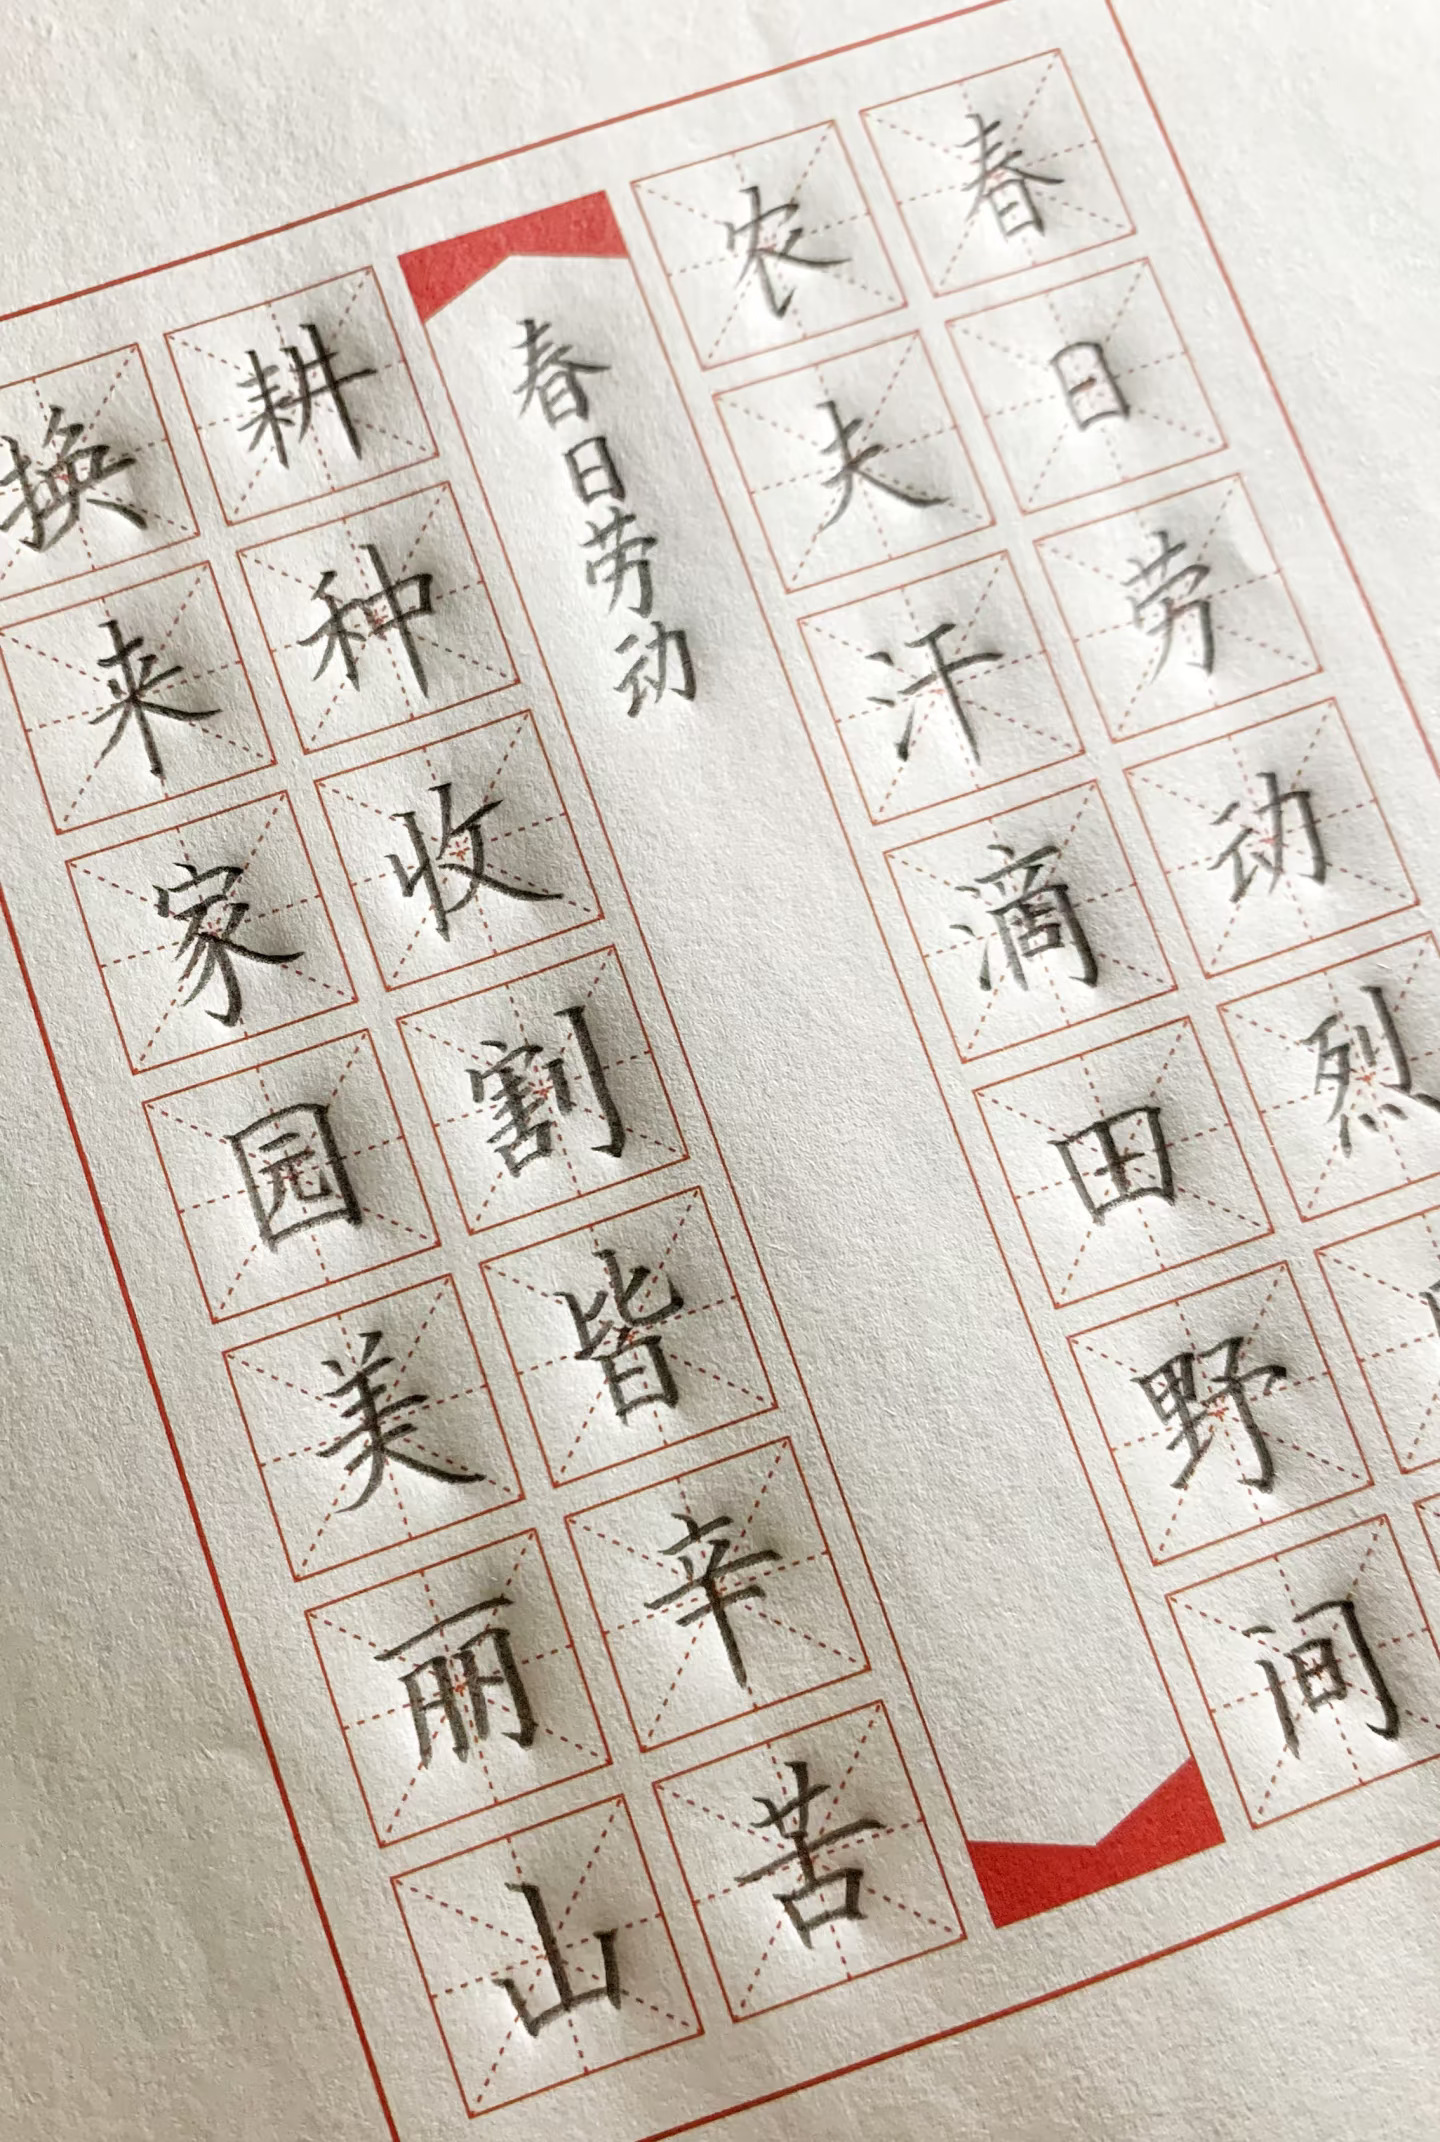 春日劳动烈
农夫汗滴田野间
春日劳动
耕种收割皆辛苦
换来家园美丽山